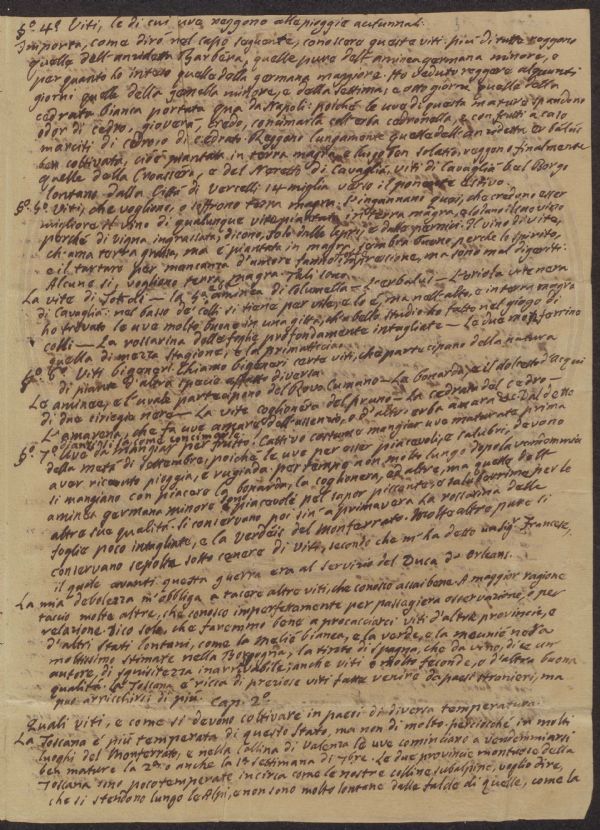 §º. 4º. Viti, le di cui uve reggono alle pioggie autunnali.
Importa, come dirò nel caso seguente, conoscere queste viti. più di tutte reggono
quelle dell'anzidetta Barbera, quelle pure dell'aminea germana minore, e
per quanto ho inteso quelle della germana maggiore. Ho veduto reggere alquanti
giorni quelle della gemella minore, e della settima; e otto giorni quelle della
cedrata bianca portata qua da Napoli. poiché le uve di questa mature spandono
odor di cedro, gioverà, credo, concimarla coll'erba cedronella, e con frutti a caso
marciti di cedro o di cedrati. Reggono lungamente quelle dell'anzidetta erbalus
ben coltivata, cioè piantata in terra magra, e luogo ben solatio, reggono finalmente
quelle della Croassera, e del Neretti di Cavaglià, viti di Cavaglià bel Borgo
lontano dalla Città di Vercelli 14 miglia verso il ponente estivo.
§º. 5º. Viti, che vogliono, o soffrono terra magra. S'ingannano quei, che credono esser
migliore il vino di qualunque vite piantata in terra magra, e lodano il
perchè di vigna ingrassata, dicono, solo dalle lepri, e dalle pernici. Il vino di vite,
chiama terra grassa, ma è piantata in magra, sembra buono, perche lo spirito,
e il tartaro per mancanza d'umore fanno impressione, ma sono mal digeriti.
Alcune sì, vogliono terra magra. Tali sono
La vite di Tokai — la 5ª aminea di Columella = l'erbalus — L'oriola vite nera
di Cavaglià: nel basso de' colli si tiene per vile, e lo è, ma nell'alto, e in terra magra
ho trovato le uve molto buone in una gitta, che a bello studio ho fatto nel giogo di
colli — La rossarina dalle foglie profondamente intagliate — Le due monferrine
quella di mezza stagione, e la primaticcia.
§º. 6º. Viti bigeneri. Chiamo bigeneri certe viti, che partecipano della natura
di piante d'altra specie affatto diversa.
Le aminee, e l'uvale partecipano del Rovo Cumano — La bonarda, e il dolcetto d'Acqui
di due ciriegie nere — La vite coglionera del pruno — La cedrata del cedro —
L'amarena, che fa uve amare dell'assenzio, o d'altra erba amara
§º. 7º. Uve da mangiar per frutto. Cattivo costume mangiar uve maturate prima
della metà di settembre, poiché le uve per esser piacevoli, e salubri, devono
aver ricevuto pioggia, e rugiada. per tempo non molto lungo dopo la vendemmia
si mangiano con piacere la bonarda, la coglionera, ed altre, ma quelle dell'
aminea germana minore sono piacevole pel sapor piccante, e salubre per le
altre sue qualità. Si conservano poi fin a primavera la rossarina dalle
foglie poco intagliate, e la Verdeis del Monferrato. Molte altre pure si
conservano sepolte sotto cenere di viti, secondo che m'ha detto un Francese,
il quale avanti questa guerra era al servizio del Duca d'Orleans.
La mia debolezza m'obbliga a tacere altre viti, che conosco assai bene. A maggior ragione
taccio molte altre, che conosco imperfettamente per passagiera osservazione, o per
relazione. Dico solo, che faremmo bene a procacciarci viti d'altre provincie, e
d'altri stati lontani, come la melié bianca, e la verde, e la meunié nera
moltissimo stimate nella Borgogna, la tinto di Spagna, che dà vino, dice un
autore, di squisitezza inarrivabile; anche viti e molto feconde, o d'altra buona
qualità. La Toscana è ricca di preziose viti fatte venire da paesi stranieri, ma
può arricchirsi di più.
Cap. 2º.
Quali viti, e come si devono coltivare in paesi di diversa temperatura.
La Toscana è più temperata di questo stato, ma non di molto. perciocchè in molti
luoghi del Monferrato, e nella collina di Valenza le uve cominciano a vendemmiarsi
ben mature la 2ª, o anche la 1ª settimana di 7bre. Le due provincie montuose della
Toscana sono poco temperate incirca come le nostre colline subalpine, voglio dire,
che si stendono lungo le Alpi, e non sono molto lontane dalle falde di quelle, come la